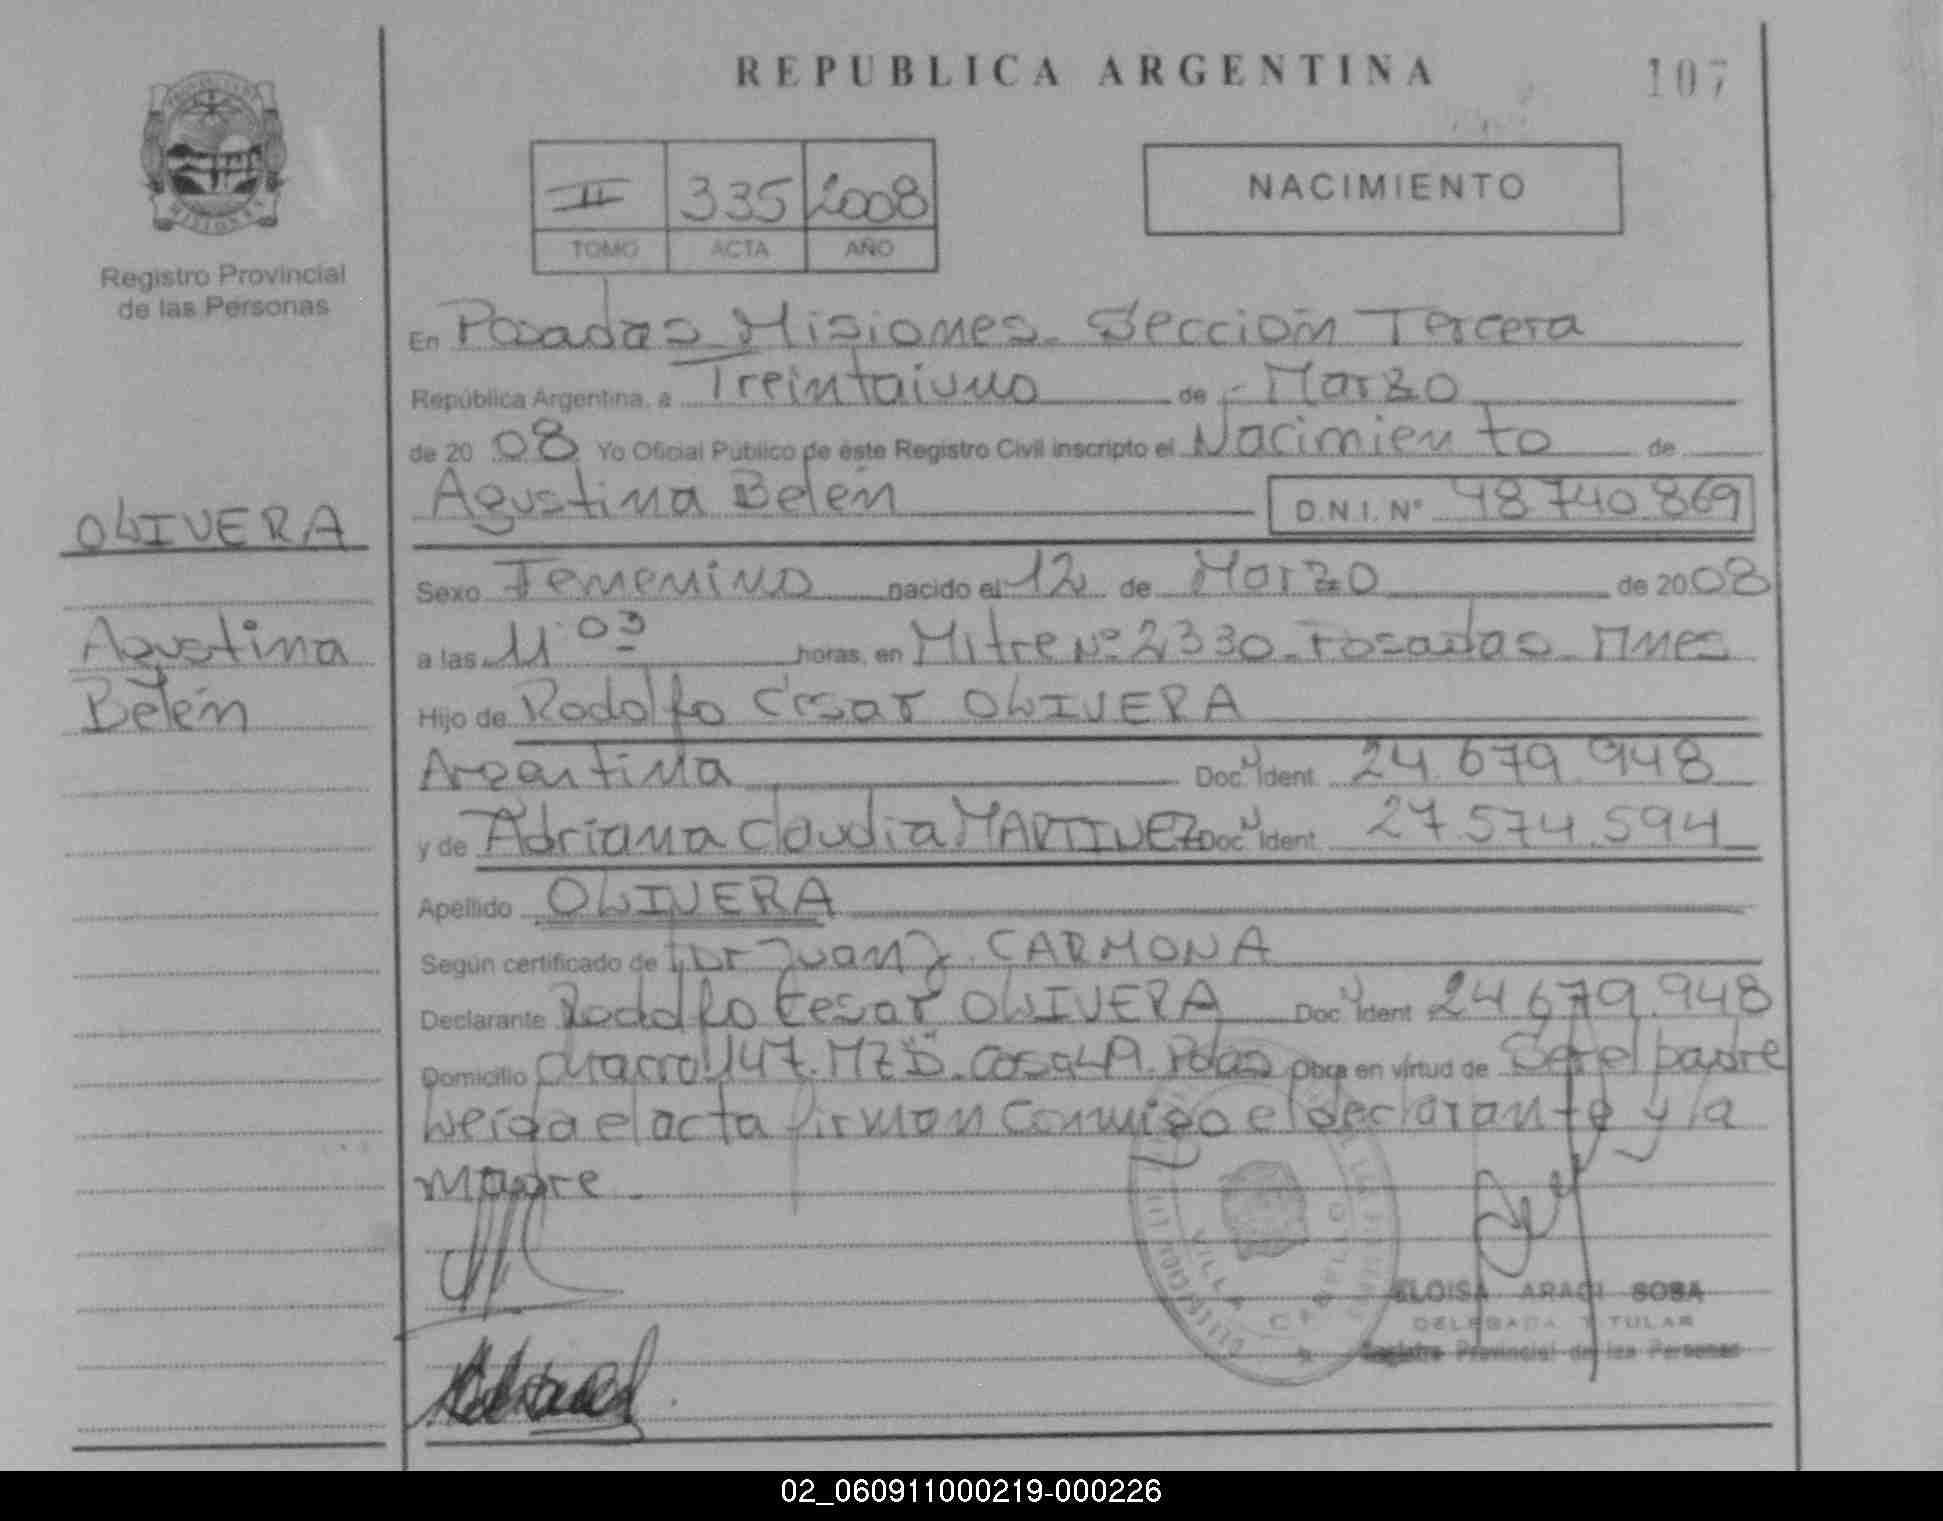 REPUBLICA ARGENTINA
107
II 335 2008
TOMO ACTA AÑO
NACIMIENTO
Registro Provincial
de las Personas
En Posadas Misiones. Sección Tercera
República Argentina, a Treintaiuno de Marzo
de 20 08 Yo Oficial Público de éste Registro Civil inscripto el Nacimiento de
Agustina Belén D.N.I. Nº 48 740 869
OLIVERA
Sexo Femenino nacido el 12 de Marzo de 20 08
Agustina
a las 11 03 horas, en Mitre Nº 2330. Posadas. Mnes
Belén
Hijo de Rodolfo Cesar OLIVERA
Argentina Doc. Ident. 24.679.948
y de Adriana Claudia MARTINEZ Doc. Ident. 27.574.594
Apellido OLIVERA
Según certificado de Dr Juan J. CARMONA
Declarante Rodolfo Cesar OLIVERA Doc. Ident 24.679.948
Domicilio 147. MZ Pdas Obra en virtud de Ser el padre
Leida el acta firman conmigo el declarante y la
Madre.
VILLA CABELLO
ELOISA ARACI SOSA
DELEGADA TITULAR
Registro Provincial de las Personas
02_060911000219-000226